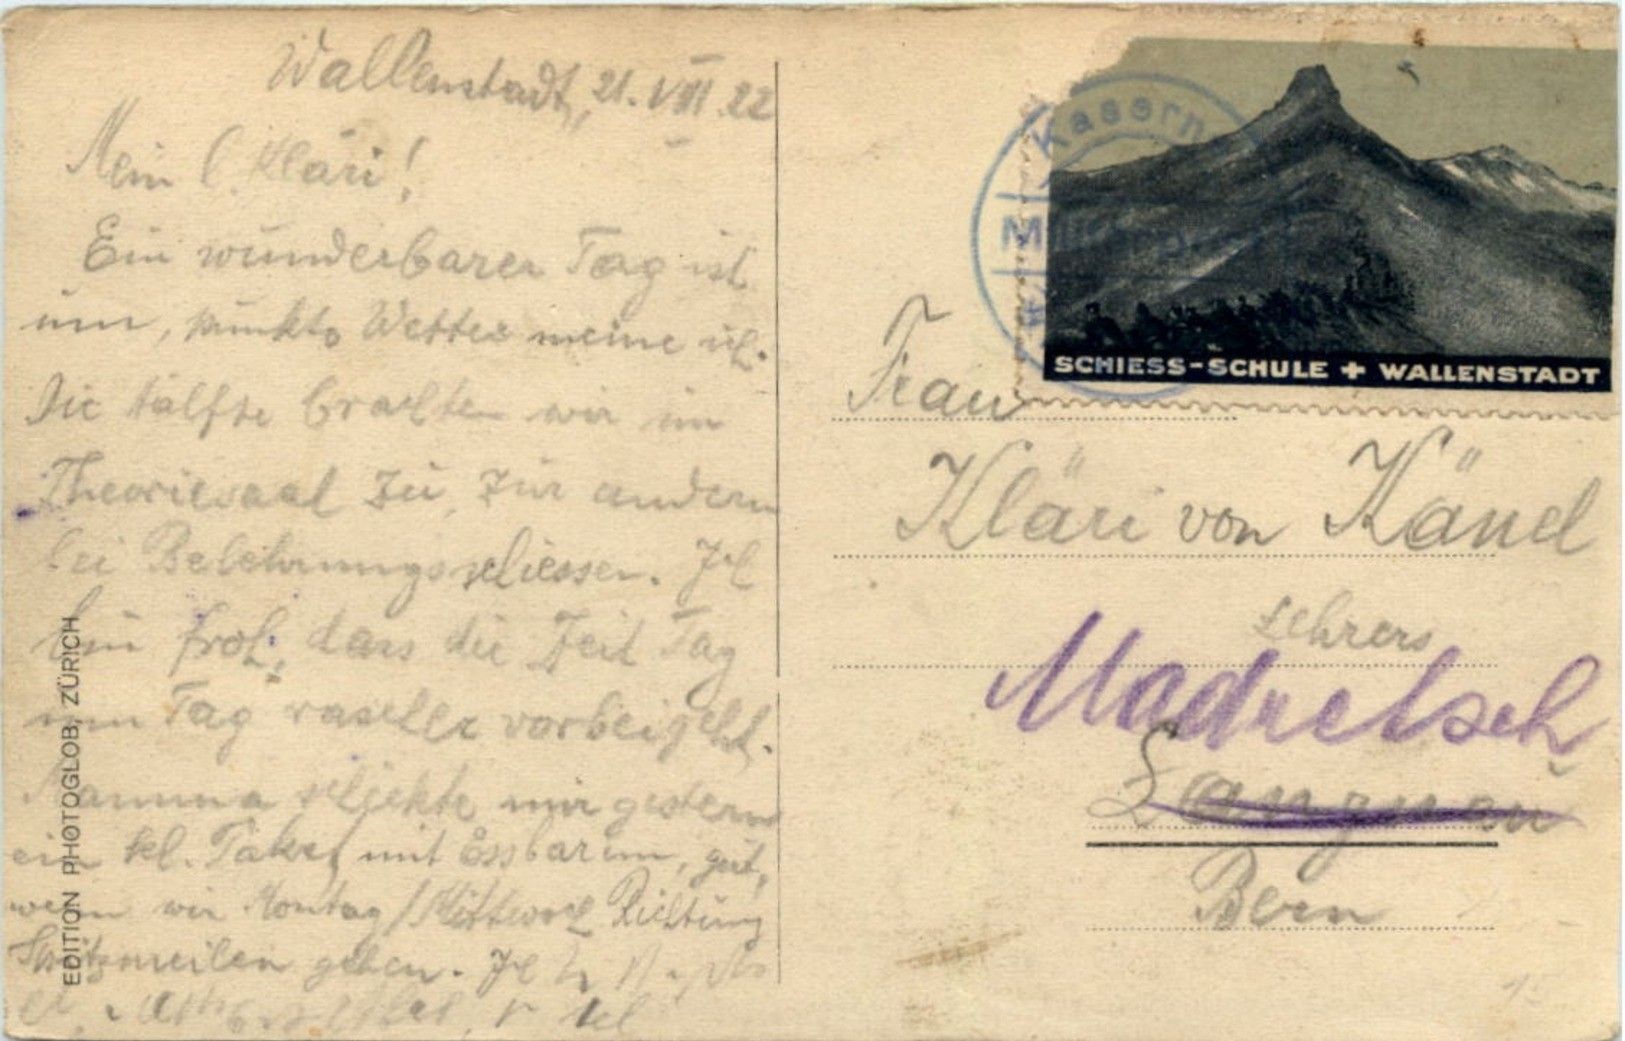 Wallenstadt, 21. VIII 22
Mein l. Kläri!
Ein wunderbarer Tag ist
um, punkto Wetter meine ich.
Die Hälfte brachten wir im
Theoriesaal zu, zur andern
bei Belehrungsschiessen. Ich
bin froh, dass die Zeit Tag
um Tag rascher vorbeigeht.
Mamma schickte mir gestern
ein kl. Paket mit Essbarem, gut,
wenn wir Montag / Mittwoch Richtung
Spitzmeilen gehen. Ich
EDITION PHOTOGLOB, ZÜRICH
Kasern
Mili
SCHIESS-SCHULE + WALLENSTADT
Frau
Kläri von Känel
Lehrers
Madretsch
Langnau
Bern